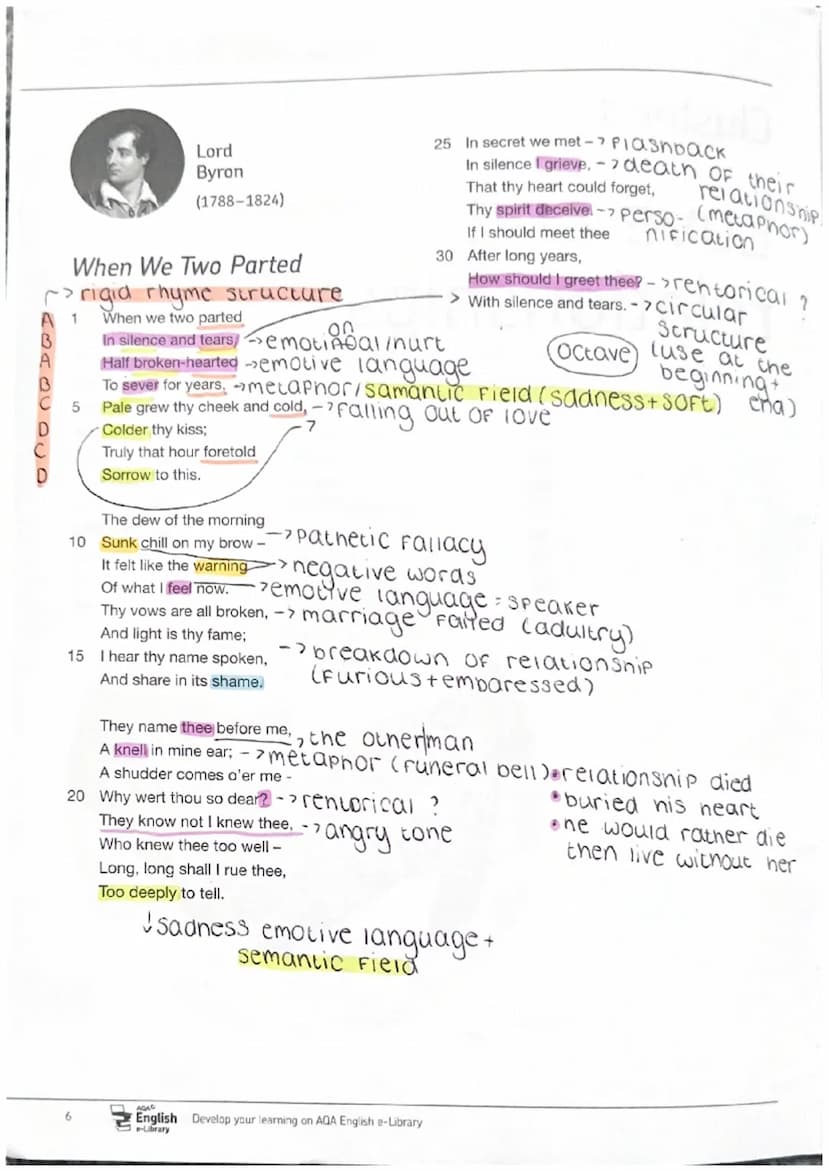 Lord
Byron
(1788–1824)
When We Two Parted
→ rigid rhyme structure
A 1 When we two parted
B In silence and tears, → emotinoal/hurt
on
A Half broken-hearted → emotive language
B To sever for years, → metaphor/samantic field (sadness + soft)
C 5 Pale grew thy cheek and cold, → falling out of love
D Colder thy kiss;
C Truly that hour foretold
D Sorrow to this.
The dew of the morning
10 Sunk chill on my brow – → Pathetic fallacy
It felt like the warning → negative words
Of what I feel now. → emotive language = speaker
Thy vows are all broken, → marriage failed (adultry)
And light is thy fame;
15 I hear thy name spoken, → breakdown of relationship
And share in its shame. (furious + embaressed)
They name thee before me, → the other man
A knell in mine ear; → metaphor (funeral bell) • relationship died
A shudder comes o'er me -
• buried his heart
20 Why wert thou so dear? → rehtorical ?
They know not I knew thee, → angry tone
• he would rather die
then live without her
Who knew thee too well –
Long, long shall I rue thee,
Too deeply to tell.
↓ sadness emotive language +
semantic field
25 In secret we met – → flashback
In silence I grieve, → death of their
relationship
(metaphor)
That thy heart could forget,
Thy spirit deceive. → perso-
nification
If I should meet thee
30 After long years,
How should I greet thee? → rehtorical ?
> With silence and tears. → circular
structure
(use at the
beginning +
end)
octave
6
AQA
English
e-Library
Develop your learning on AQA English e-Library